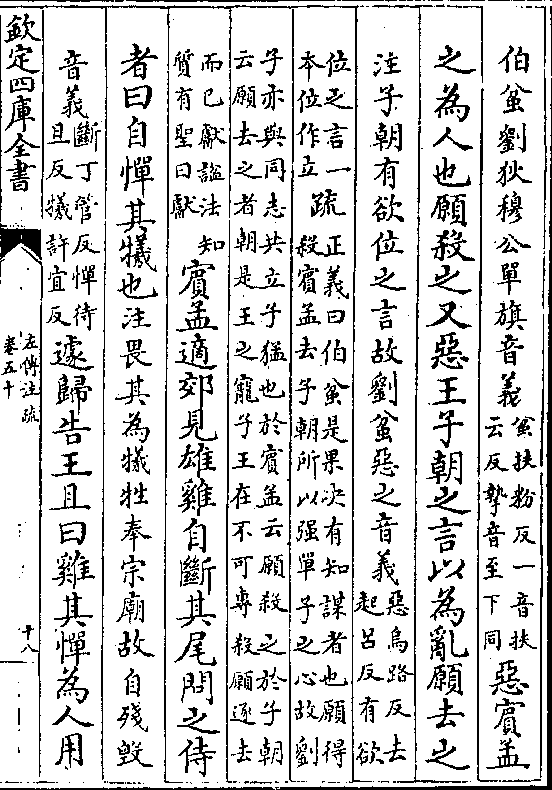 伯蚠劉狄穆公單旗音義蚠扶粉反一音扶云反摯音至下同惡賓孟
之為人也願殺之又惡王子朝之言以為亂願去之
注子朝有欲位之言故劉蚠惡之音義惡烏路反去起呂反有欲
位之言一本位作立疏正義曰伯蚠是果决有知謀者也願得殺賓孟去子朝所以强單子之心故劉
子亦與同志共立子猛也於賓孟云願殺之於子朝云願去之者朝是王之寵子王在不可專殺願逐去
而已獻諡法知質有聖曰獻賓孟適郊見雄雞自斷其尾問之侍
者曰自憚其犧也注畏其為犧牲奉宗廟故自殘毀
音義斷丁管反憚待且反犧許宜反遽歸告王且曰雞其憚為人用
欽定四庫全書
左傳注疏
卷五十
十八